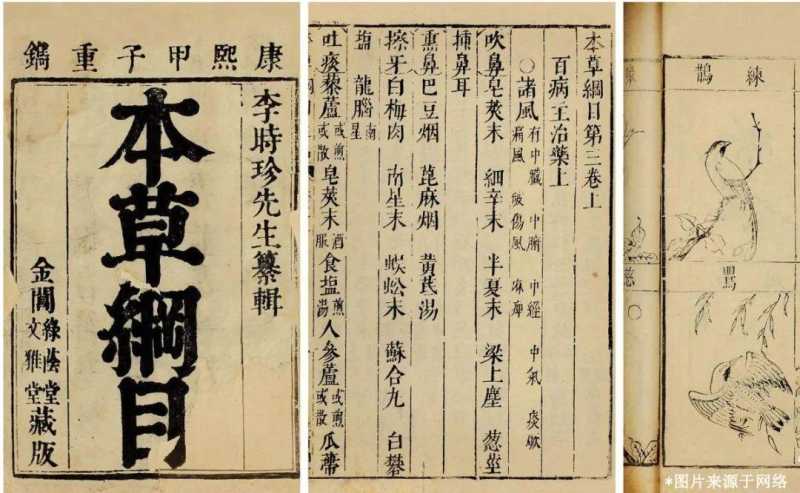 康熙甲子重鐫
李時珍先生纂輯
本草綱目
金閶綠蔭堂文雅堂藏版
本草綱目第三卷上
百病主治藥上
○諸風 有中臟 中腑 中經 中氣 痰厥
痛風 破傷風 麻痺
吹鼻皂莢末 細辛末 半夏末 梁上塵 葱莖
插鼻耳
熏鼻巴豆烟 蓖麻烟 黃芪湯
擦牙白梅肉 南星末 蜈蚣末 蘇合丸 白礬
塩 龍腦南星
吐痰藜蘆或煎或散 皂莢末酒服 食塩煎湯 人參蘆或煎或散 瓜蒂
練鵲
*图片来源于网络